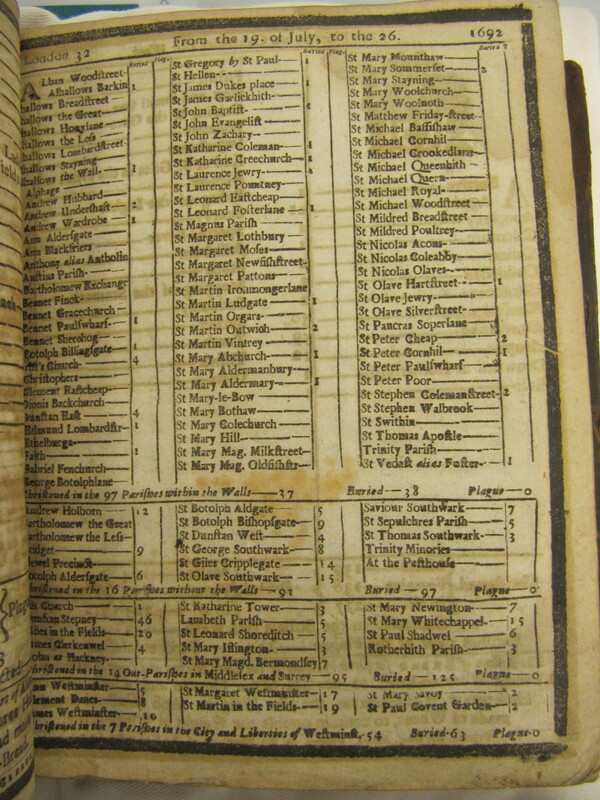 London 32 From the 19. of July, to the 26. 1692
Buried Plag. Buried Plag. Buried
Alban Woodſtreet
Alhallows Barkin 1
hallows Breadſtreet
hallows the Great
hallows Honylane
hallows the Leſs
hallows Lombardſtreet
hallows Stayning
hallows the Wall 1
Alphage
Andrew Hubbard
Andrew Underſhaft 2
Andrew Wardrobe 1
Ann Alderſgate
Ann Blackfriers
Anthony alias Antholin
Auſtins Pariſh
Bartholomew Exchange
Bennet Finck
Bennet Gracechurch
Bennet Paulſwharf 1
Bennet Sherehog
Botolph Billingſgate 1
Church 4
Chriſtophers
Clement Eaſtcheap
Dionis Backchurch
Dunſtan Eaſt 4
Edmund Lombardſtr 1
Ethelburga
Faith 1
Gabriel Fenchurch
George Botolphlane
St Gregory by St Paul 1
St Hellen
St James Dukes place 1
St James Garlickhith
St John Baptiſt
St John Evangeliſt
St John Zachary
St Katharine Coleman 1
St Katharine Creechurch 1
St Laurence Jewry
St Laurence Pountney
St Leonard Eaſtcheap
St Leonard Foſterlane 1
St Magnus Pariſh
St Margaret Lothbury
St Margaret Moſes
St Margaret Newfiſhſtreet
St Margaret Pattons
St Martin Ironmongerlane
St Martin Ludgate 1
St Martin Orgars
St Martin Outwich 2
St Martin Vintrey
St Mary Abchurch 1
St Mary Aldermanbury
St Mary Aldermary 1
St Mary-le-Bow
St Mary Bothaw
St Mary Colechurch
St Mary Hill
St Mary Mag. Milkſtreet
St Mary Mag. Oldfiſhſtr
St Mary Mounthaw
St Mary Sommerſet 2
St Mary Stayning
St Mary Woolchurch
St Mary Woolnoth
St Matthew Friday-ſtreet
St Michael Baſſiſhaw
St Michael Cornhil
St Michael Crookedlane
St Michael Queenhith
St Michael Quern
St Michael Royal
St Michael Woodſtreet
St Mildred Breadſtreet
St Mildred Poultrey
St Nicolas Acons
St Nicolas Coleabby
St Nicolas Olaves
St Olave Hartſtreet 1
St Olave Jewry
St Olave Silverſtreet
St Pancras Soperlane
St Peter Cheap 2
St Peter Cornhil 1
St Peter Paulſwharf
St Peter Poor
St Stephen Colemanſtreet 2
St Stephen Walbrook
St Swithin
St Thomas Apoſtle
Trinity Pariſh
St Vedaſt alias Foſter 1
Chriſtened in the 97 Pariſhes within the Walls 37 Buried 38 Plague 0
Andrew Holborn 12
Bartholomew the Great
Bartholomew the Leſs
Bridget 9
Precinct
Botolph Alderſgate 6
St Botolph Aldgate 5
St Botolph Biſhopſgate 9
St Dunſtan Weſt 4
St George Southwark 8
St Giles Cripplegate 14
St Olave Southwark 15
Saviour Southwark 7
St Sepulchres Pariſh 5
St Thomas Southwark 3
Trinity Minories
At the Peſthouſe
Chriſtened in the 16 Pariſhes without the Walls 91 Buried 97 Plague 0
Church 1
Dunſtan Stepney 46
Giles in the Fields 20
James Clerkenwel 4
John at Hackney
St Katharine Tower 3
Lambeth Pariſh 5
St Leonard Shoreditch 5
St Mary Iſlington 3
St Mary Magd. Bermondſey 7
St Mary Newington 7
St Mary Whitechappel 15
St Paul Shadwel 6
Rotherhith Pariſh 3
Chriſtened in the 14 Out-Pariſhes in Middleſex and Surrey 95 Buried 125 Plague 0
Weſtminſter 5
Clement Danes 8
James Weſtminſter 10
St Margaret Weſtminſter 17
St Martin in the Fields 19
St Mary Savoy 2
St Paul Covent Garden 2
Chriſtened in the 7 Pariſhes in the City and Liberties of Weſtminſt. 54 Buried 63 Plague 0